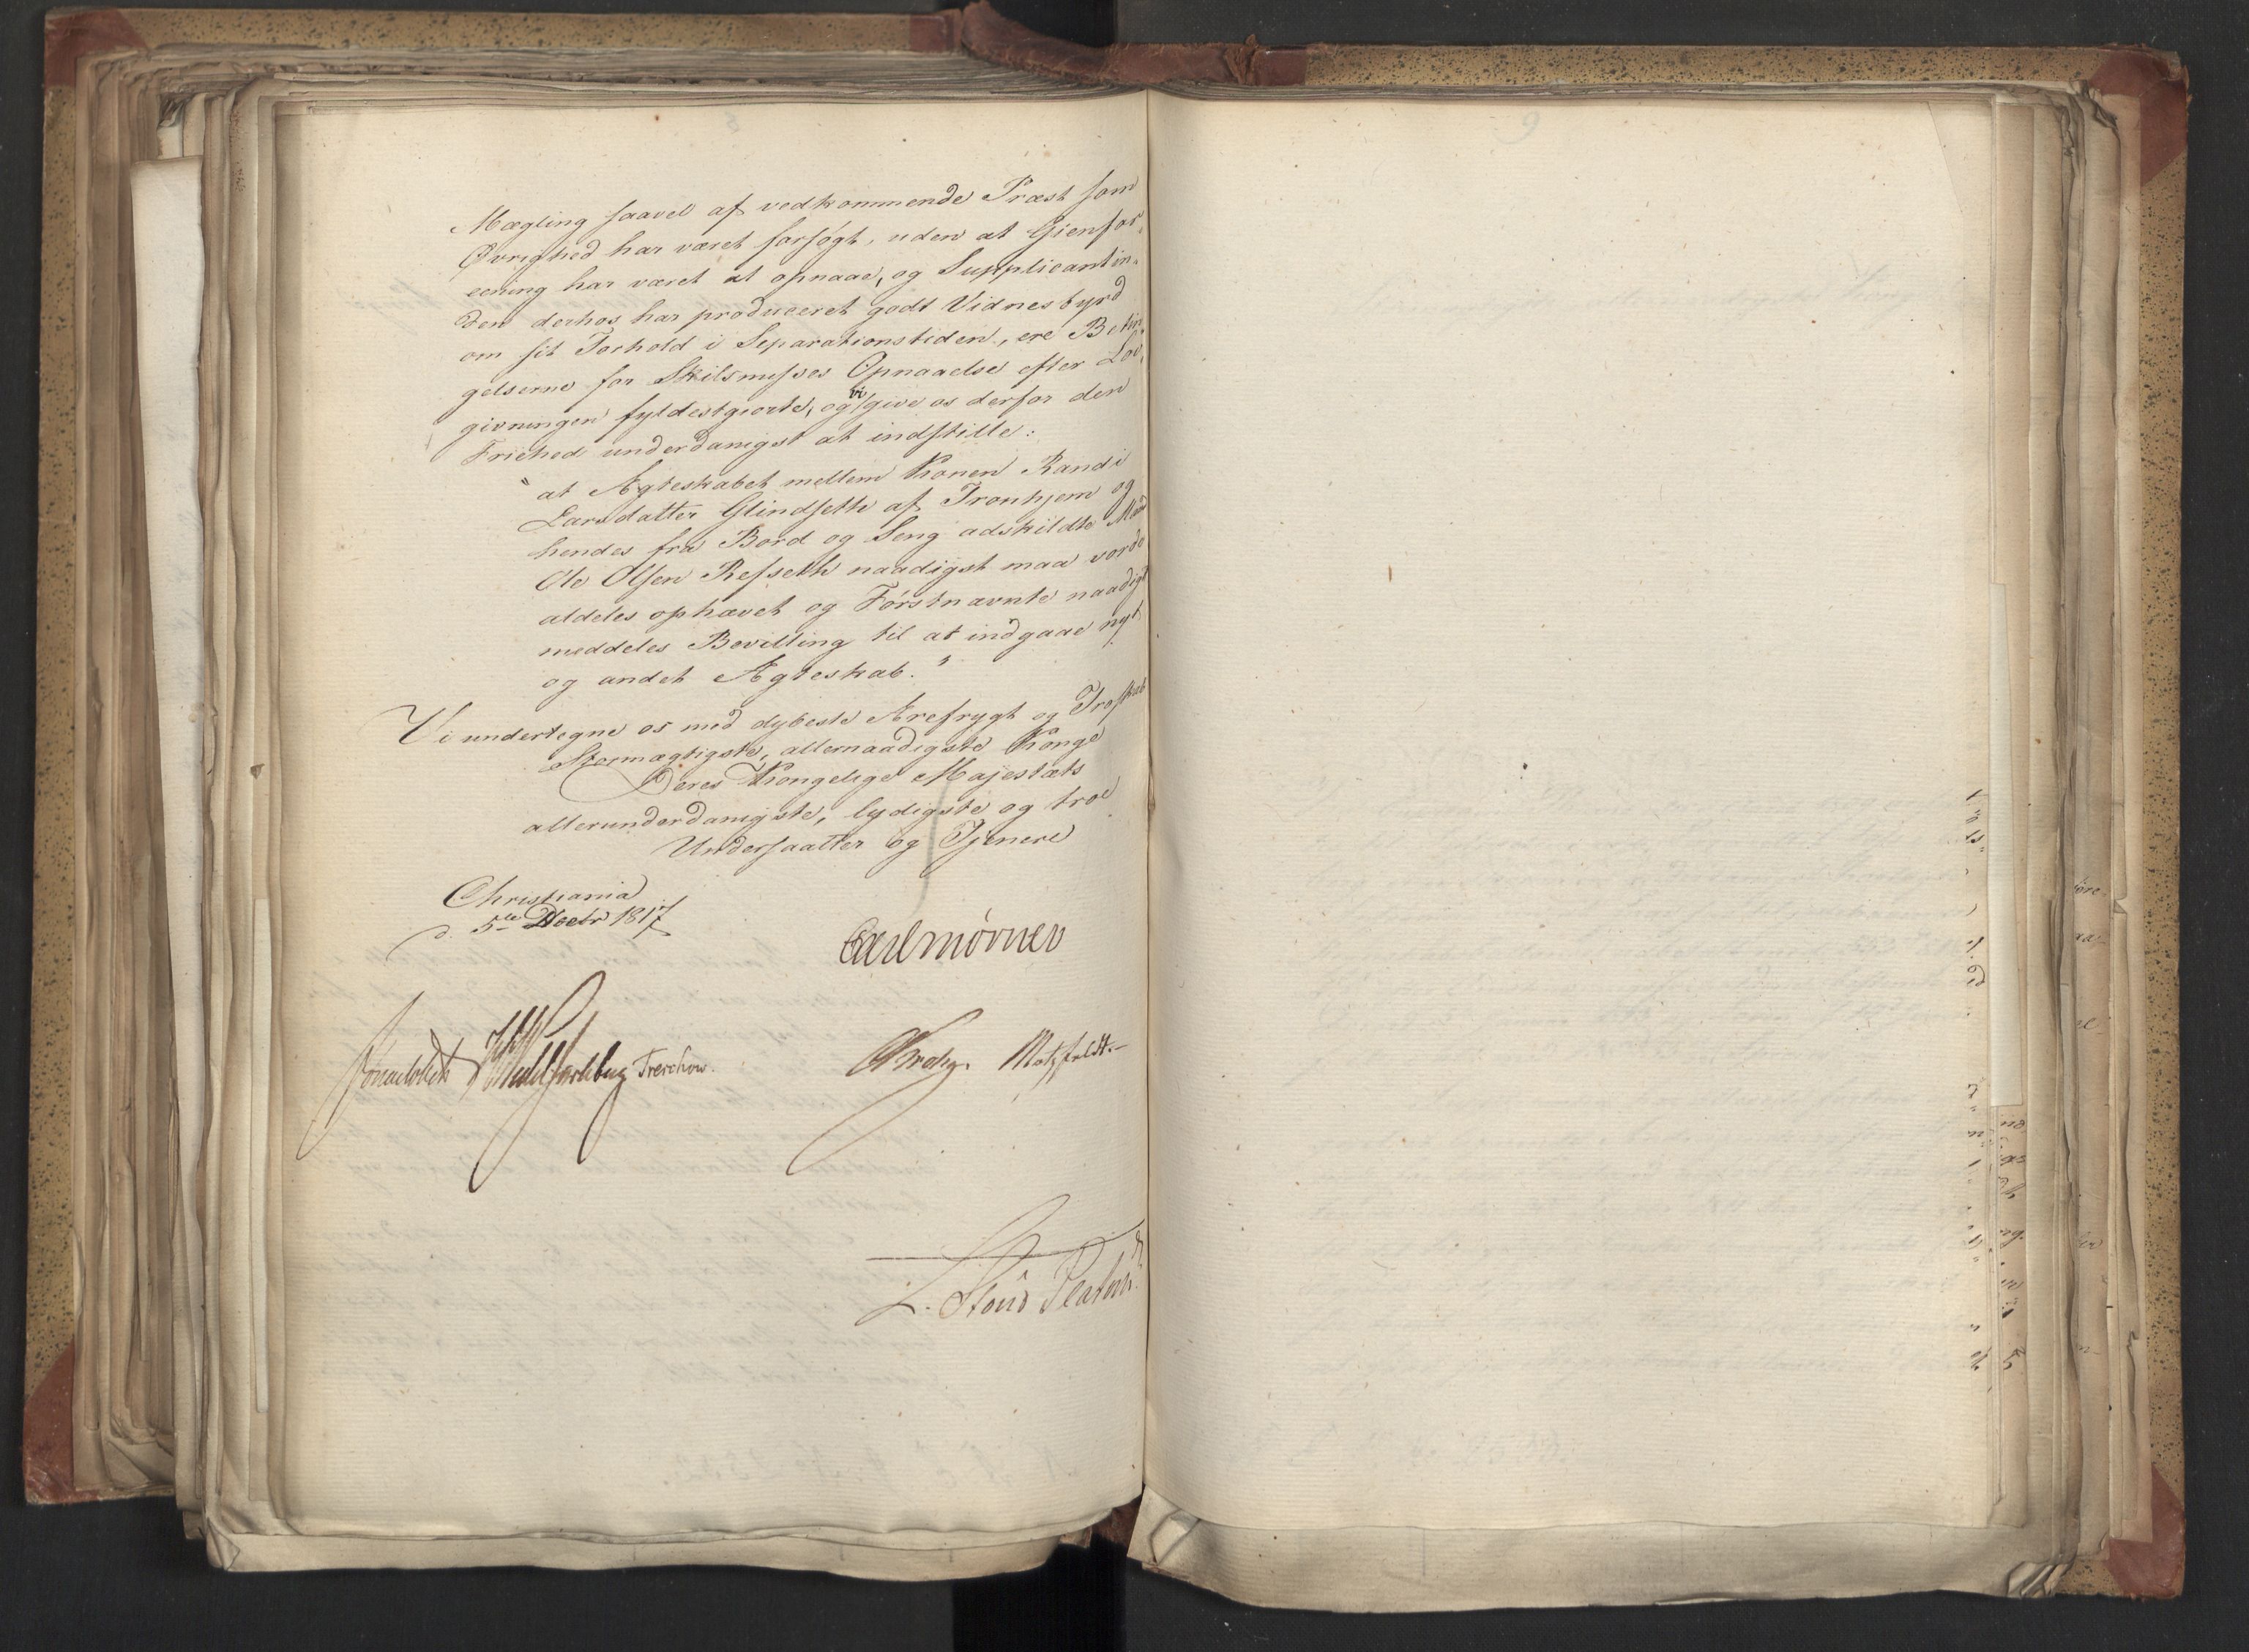 Mægling saavel af vedkommende Præst som
Øvrighed har været forsøgt, uden at Gienfor-
eening har været at opnaae, og Supplicantin-
den derhos har produceeret godt Vidnesbyrd
om sit Forhold i Separationstiden, ere Betin-
gelserne for Skilsmisses Opnaaelse efter Lov-
givningen fyldestgiorte, og vi give os derfor den
Friehed underdanigst at indstille:
"at Ægteskabet mellem Konen Randi
Larsdatter Glindseth af Tronhjem og
hendes fra Bord og Seng adskildte Mand
Ole Olsen Refseth naadigst maa vorde
aldeles ophævet og Førstnævnte naadigst
meddeles Bevilling til at indgaae nyt
og andet Ægteskab."
Vi undertegne os med dybeste Ærefrygt og Troskab
Stormægtigste, allernaadigste Konge
Deres Kongelige Majestæts
allerunderdanigste, lydigste og troe
Undersaatter og Tjenere
Christiania
d. 5te Decbr 1817
Carl Mörner
Sommerhielm Treschow. Krohg. Motzfeldt.
L. Stoud Platou